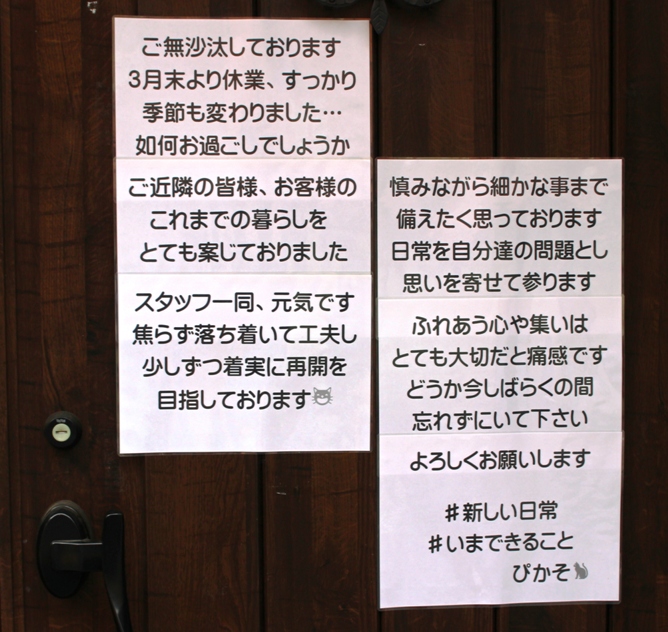 ご無沙汰しております
3月末より休業、すっかり
季節も変わりました…
如何お過ごしでしょうか
ご近隣の皆様、お客様の
これまでの暮らしを
とても案じておりました
スタッフ一同、元気です
焦らず落ち着いて工夫し
少しずつ着実に再開を
目指しております
慎みながら細かな事まで
備えたく思っております
日常を自分達の問題とし
思いを寄せて参ります
ふれあう心や集いは
とても大切だと痛感です
どうか今しばらくの間
忘れずにいて下さい
よろしくお願いします
#新しい日常
#いまできること
ぴかそ